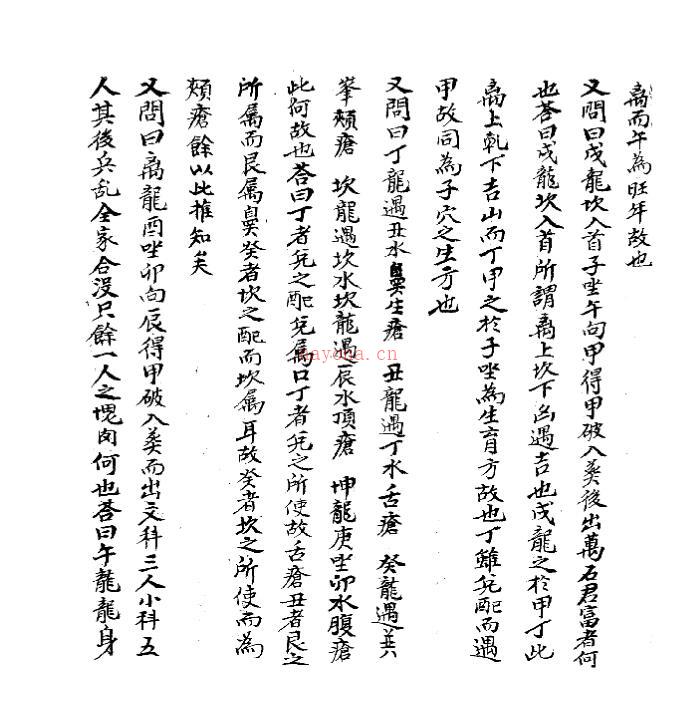 离而午為旺年故也
又問曰戌龍坎入首子坐午向甲得甲破入葬後出萬石君富者何
也荅曰戌龍坎入首所謂离上坎下凶遇吉也戌龍之於甲丁此
离上乹下吉山而丁甲之於子坐為生育方故也丁雖兊配而遇
甲故同為子穴之生方也
又問曰丁龍遇丑水鼻生瘡 丑龍遇丁水舌瘡 癸龍遇
峯頰瘡 坎龍遇坎水坎龍遇辰水頂瘡 坤龍庚坐卯水腹瘡
此何故也荅曰丁者兊之配兊属口丁者兊之所使故舌瘡丑者艮之
所属而艮属鼻癸者坎之配而坎属耳故癸者坎之所使而為
頰瘡餘以此推知矣
又問曰离龍酉坐卯向辰得甲破入葬而出文科三人小科五
人其後兵乱全家合沒只餘一人之塊肉何也荅曰午龍龍身
nayona.cn